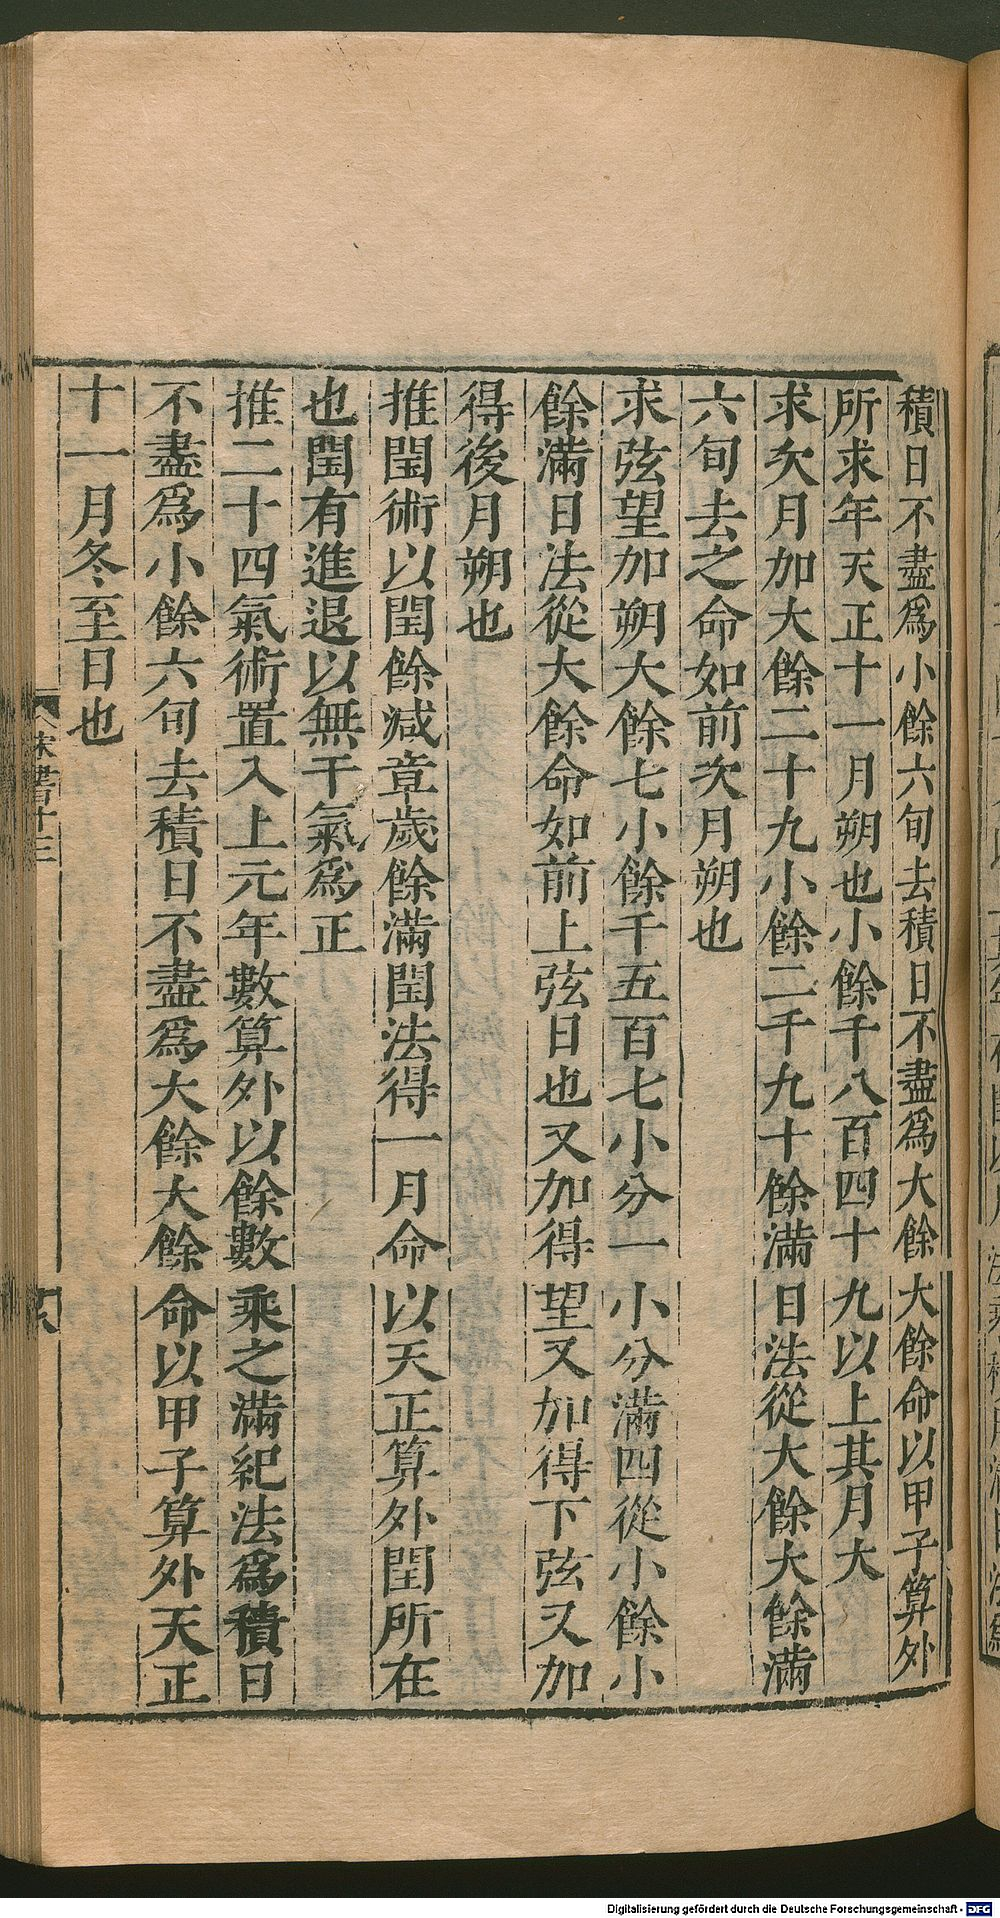 積日不盡爲小餘六旬去積日不盡爲大餘大餘命以甲子算外
所求年天正十一月朔也小餘千八百四十九以上其月大
求次月加大餘二十九小餘二千九十餘滿日法從大餘大餘滿
六旬去之命如前次月朔也
求弦望加朔大餘七小餘千五百七小分一小分滿四從小餘小
餘滿日法從大餘命如前上弦日也又加得望又加得下弦又加
得後月朔也
推閏術以閏餘減章歲餘滿閏法得一月命以天正算外閏所在
也閏有進退以無干氣爲正
推二十四氣術置入上元年數算外以餘數乘之滿紀法爲積日
不盡爲小餘六旬去積日不盡爲大餘大餘命以甲子算外天正
十一月冬至日也
宋書十三
Digitalisierung gefördert durch die Deutsche Forschungsgemeinschaft - DFG